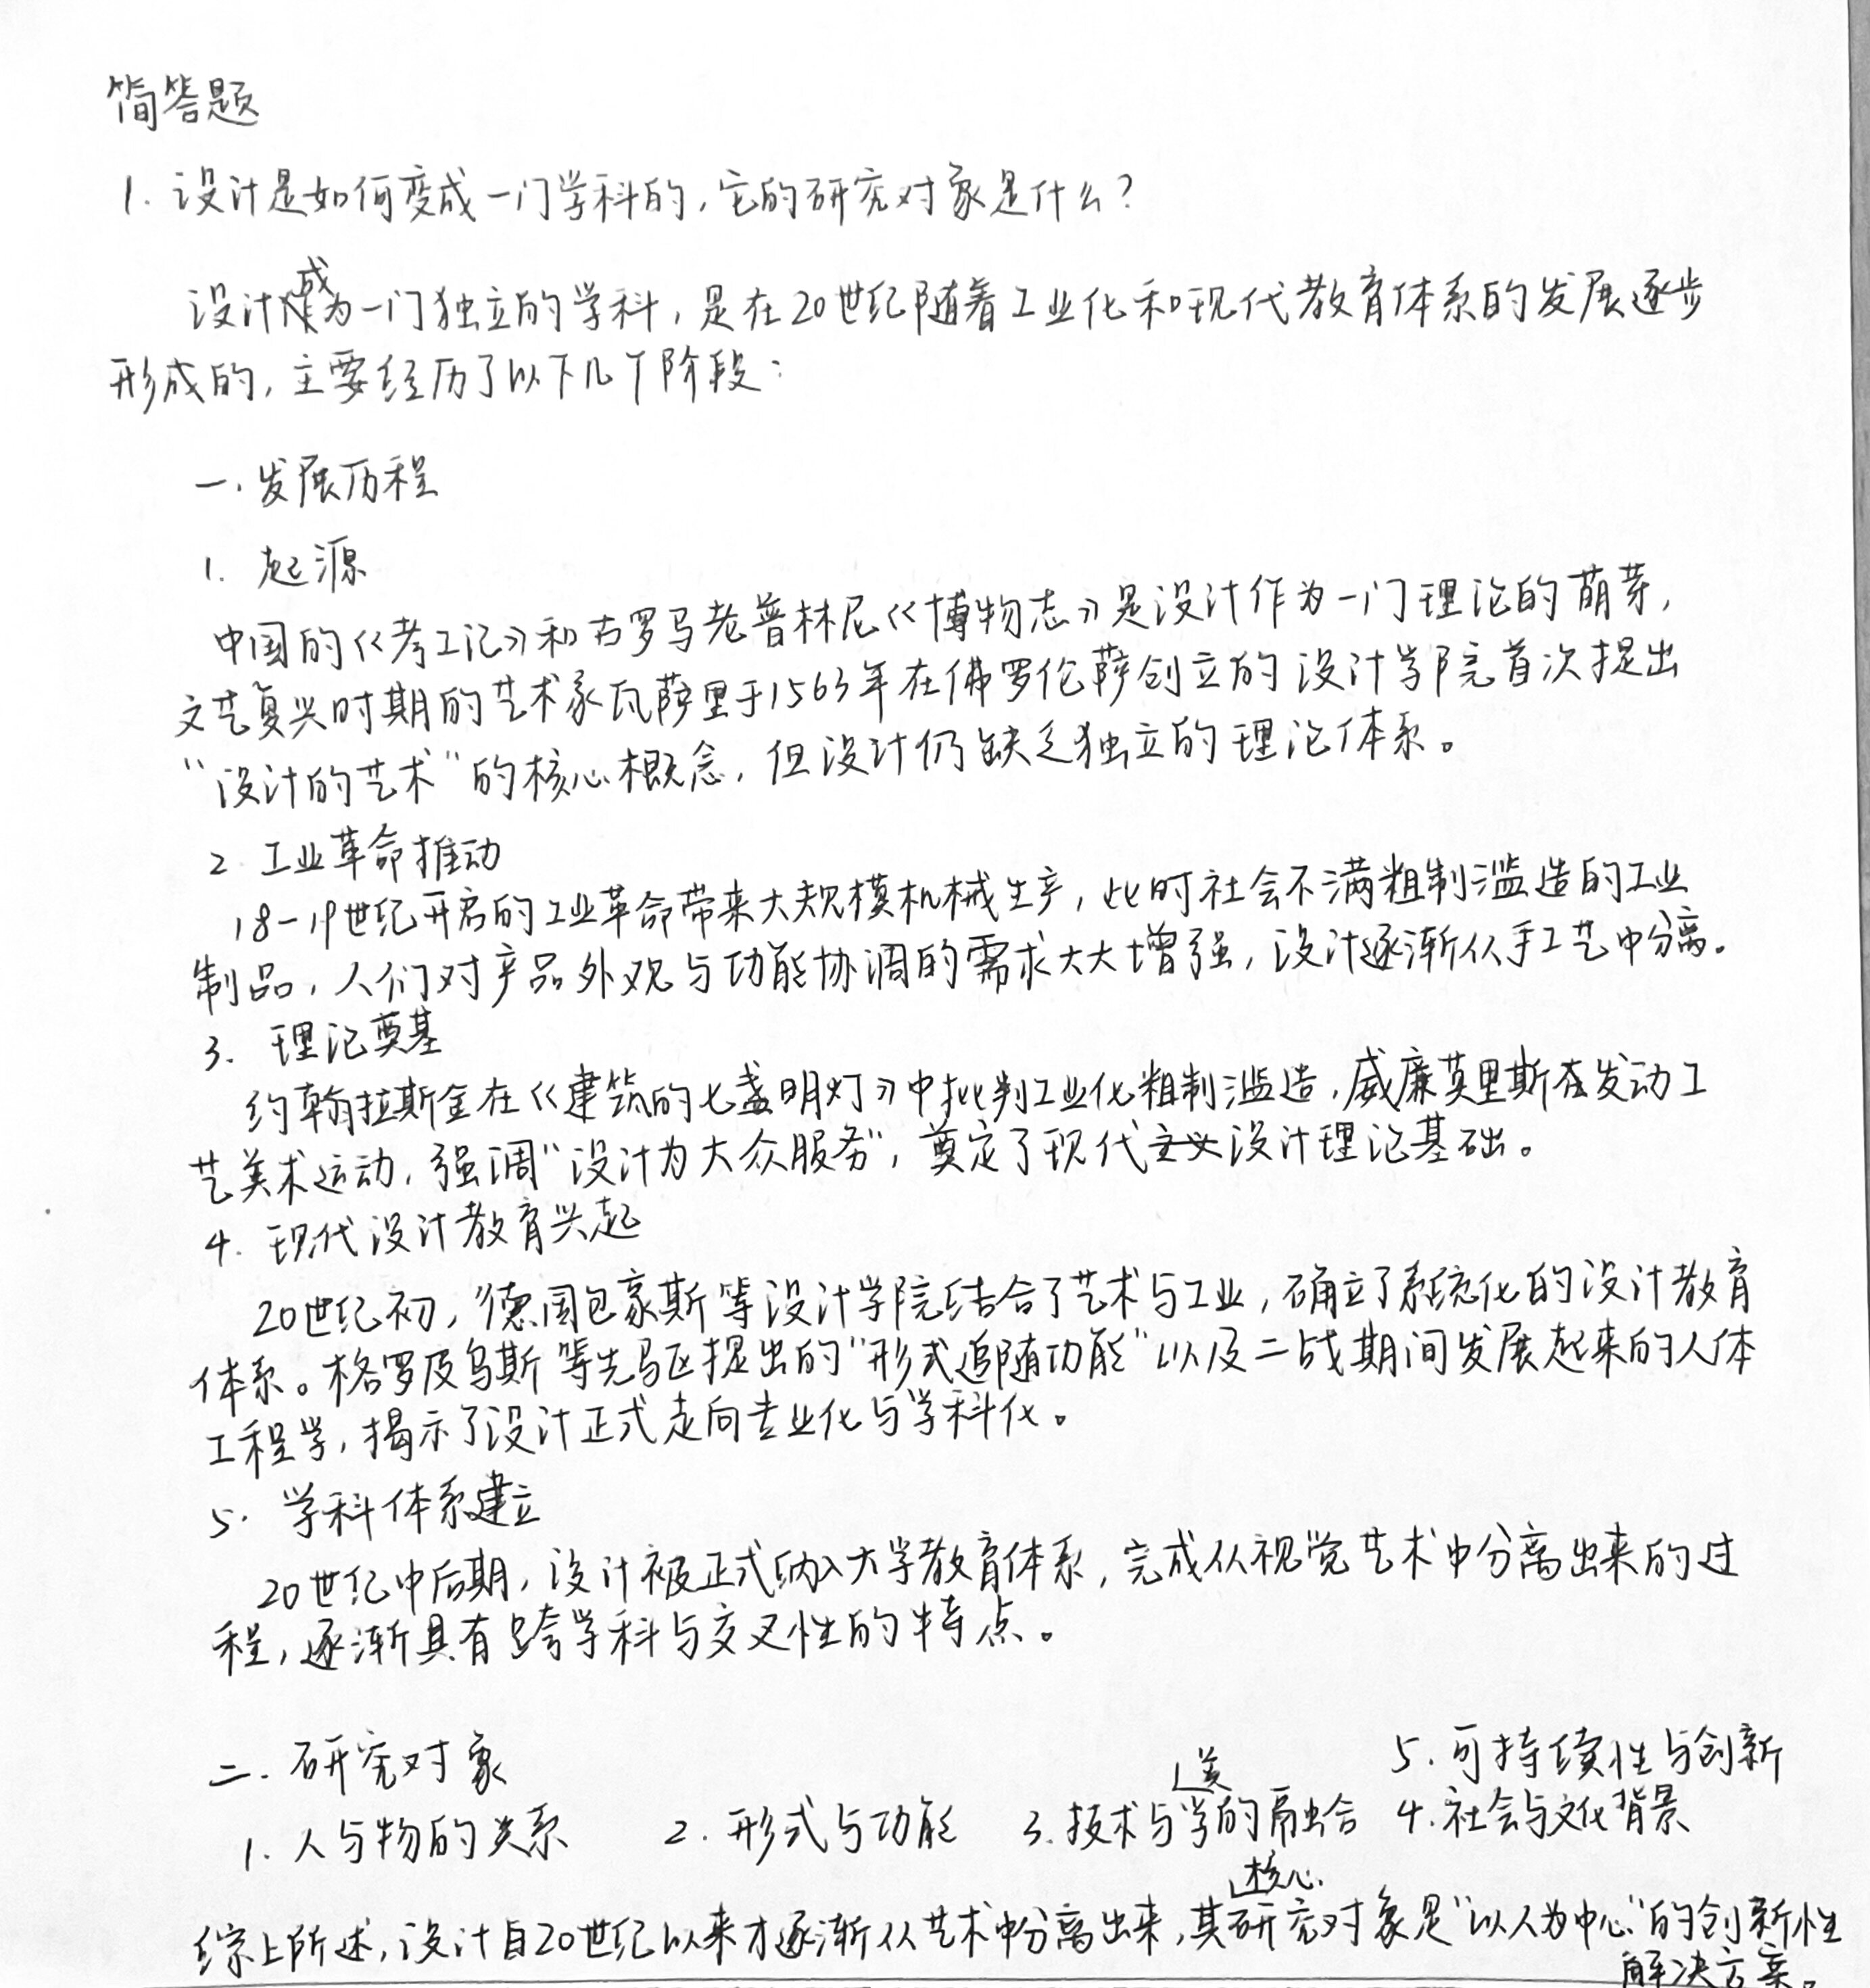 简答题
1. 设计是如何变成一门学科的，它的研究对象是什么？
设计成为一门独立的学科，是在20世纪随着工业化和现代教育体系的发展逐步
形成的，主要经历了以下几个阶段：
一. 发展历程
1. 起源
中国的《考工记》和古罗马老普林尼《博物志》是设计作为一门理论的萌芽，
文艺复兴时期的艺术家瓦萨里于1563年在佛罗伦萨创立的设计学院首次提出
“设计的艺术”的核心概念，但设计仍缺乏独立的理论体系。
2. 工业革命推动
18-19世纪开启的工业革命带来大规模机械生产，此时社会不满粗制滥造的工业
制品，人们对产品外观与功能协调的需求大大增强，设计逐渐从手工艺中分离。
3. 理论奠基
约翰拉斯金在《建筑的七盏明灯》中批判工业化粗制滥造，威廉莫里斯在发动工
艺美术运动，强调“设计为大众服务”，奠定了现代设计理论基础。
4. 现代设计教育兴起
20世纪初，德国包豪斯等设计学院结合了艺术与工业，确立了系统化的设计教育
体系。格罗皮乌斯等先驱提出的“形式追随功能”以及二战期间发展起来的人体
工程学，揭示了设计正式走向专业化与学科化。
5. 学科体系建立
20世纪中后期，设计被正式纳入大学教育体系，完成从视觉艺术中分离出来的过
程，逐渐具有跨学科与交叉性的特点。
二. 研究对象
1. 人与物的关系 2. 形式与功能 3. 技术与美学的融合 4. 社会与文化背景
5. 可持续性与创新
综上所述，设计自20世纪以来才逐渐从艺术中分离出来，其核心研究对象是“以人为中心”的创新性
解决方案。